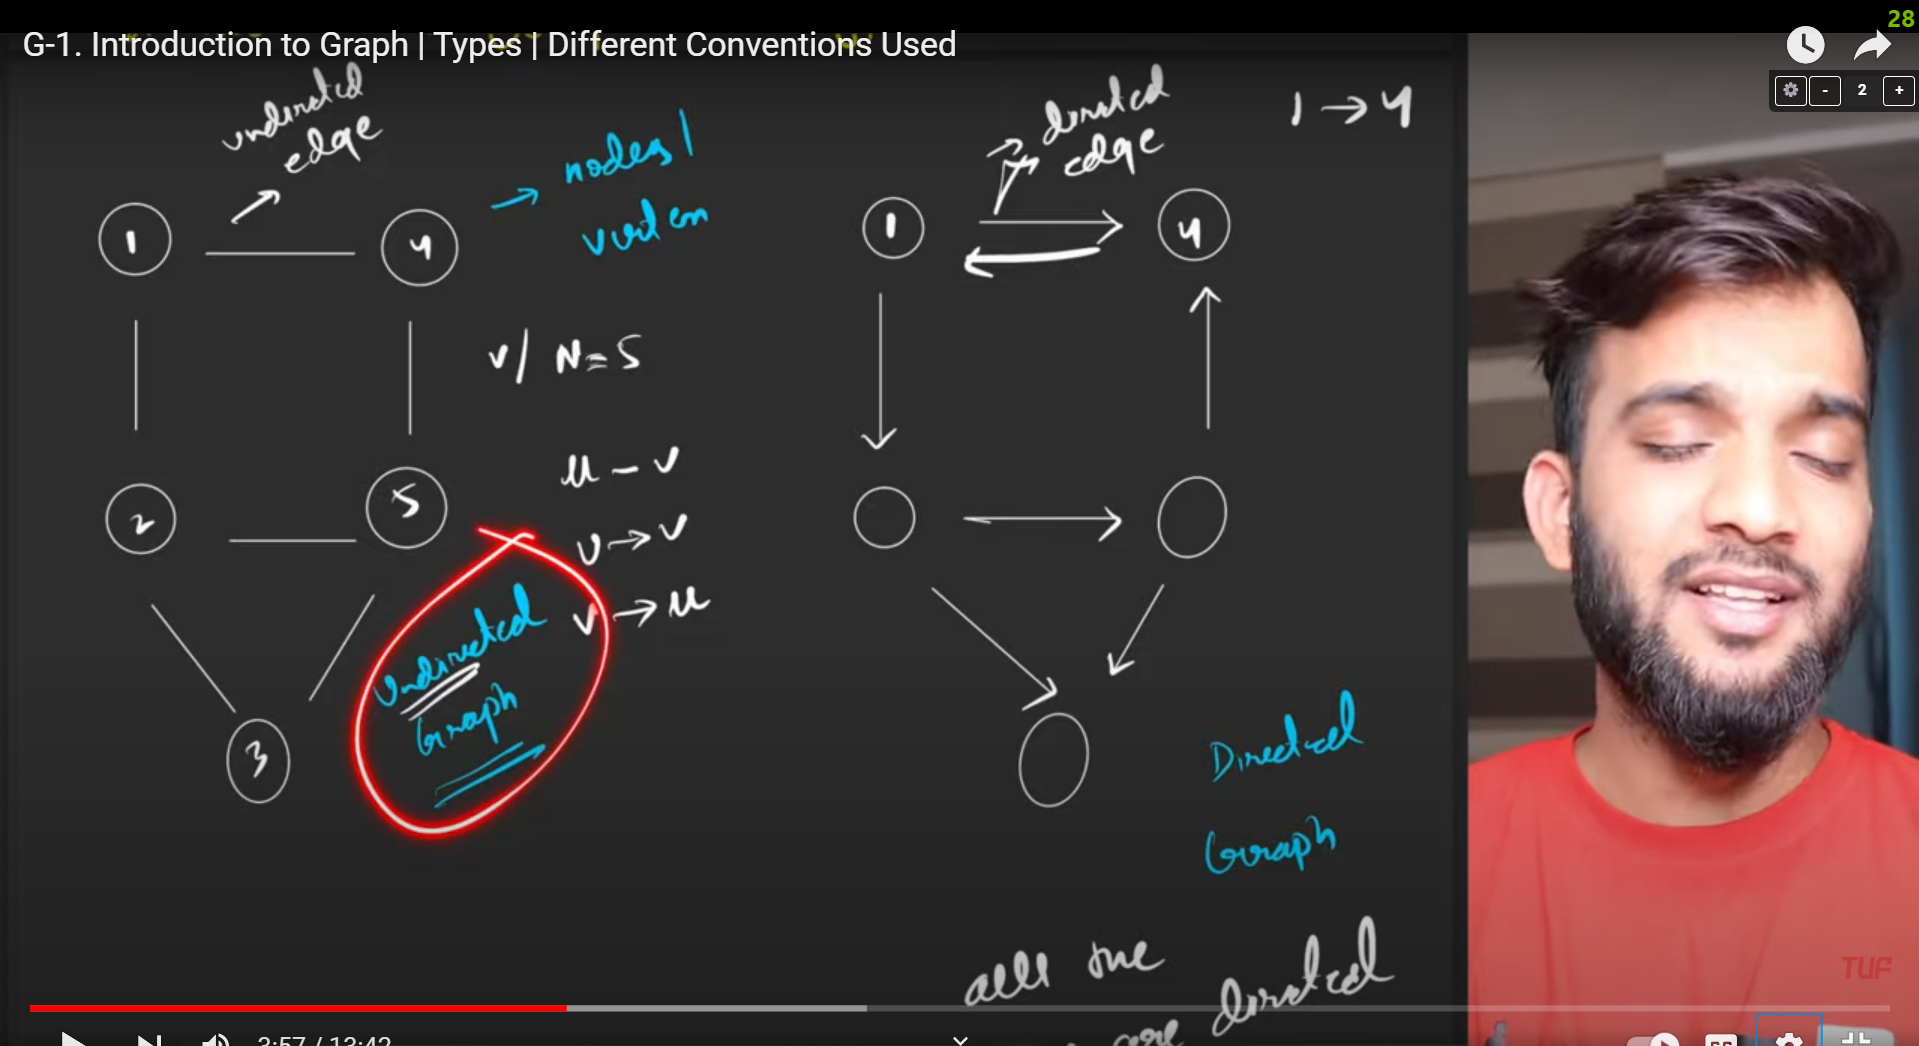 28
G-1. Introduction to Graph | Types | Different Conventions Used
- 2 +
undirected
edge
nodes /
vertex
1
4
v/ N=5
u - v
u → v
v → u
2
5
3
Undirected
Graph
directed
edge
1 → 4
1
4
Directed
Graph
all the
are directed
TUF
3:57 / 13:42
CC